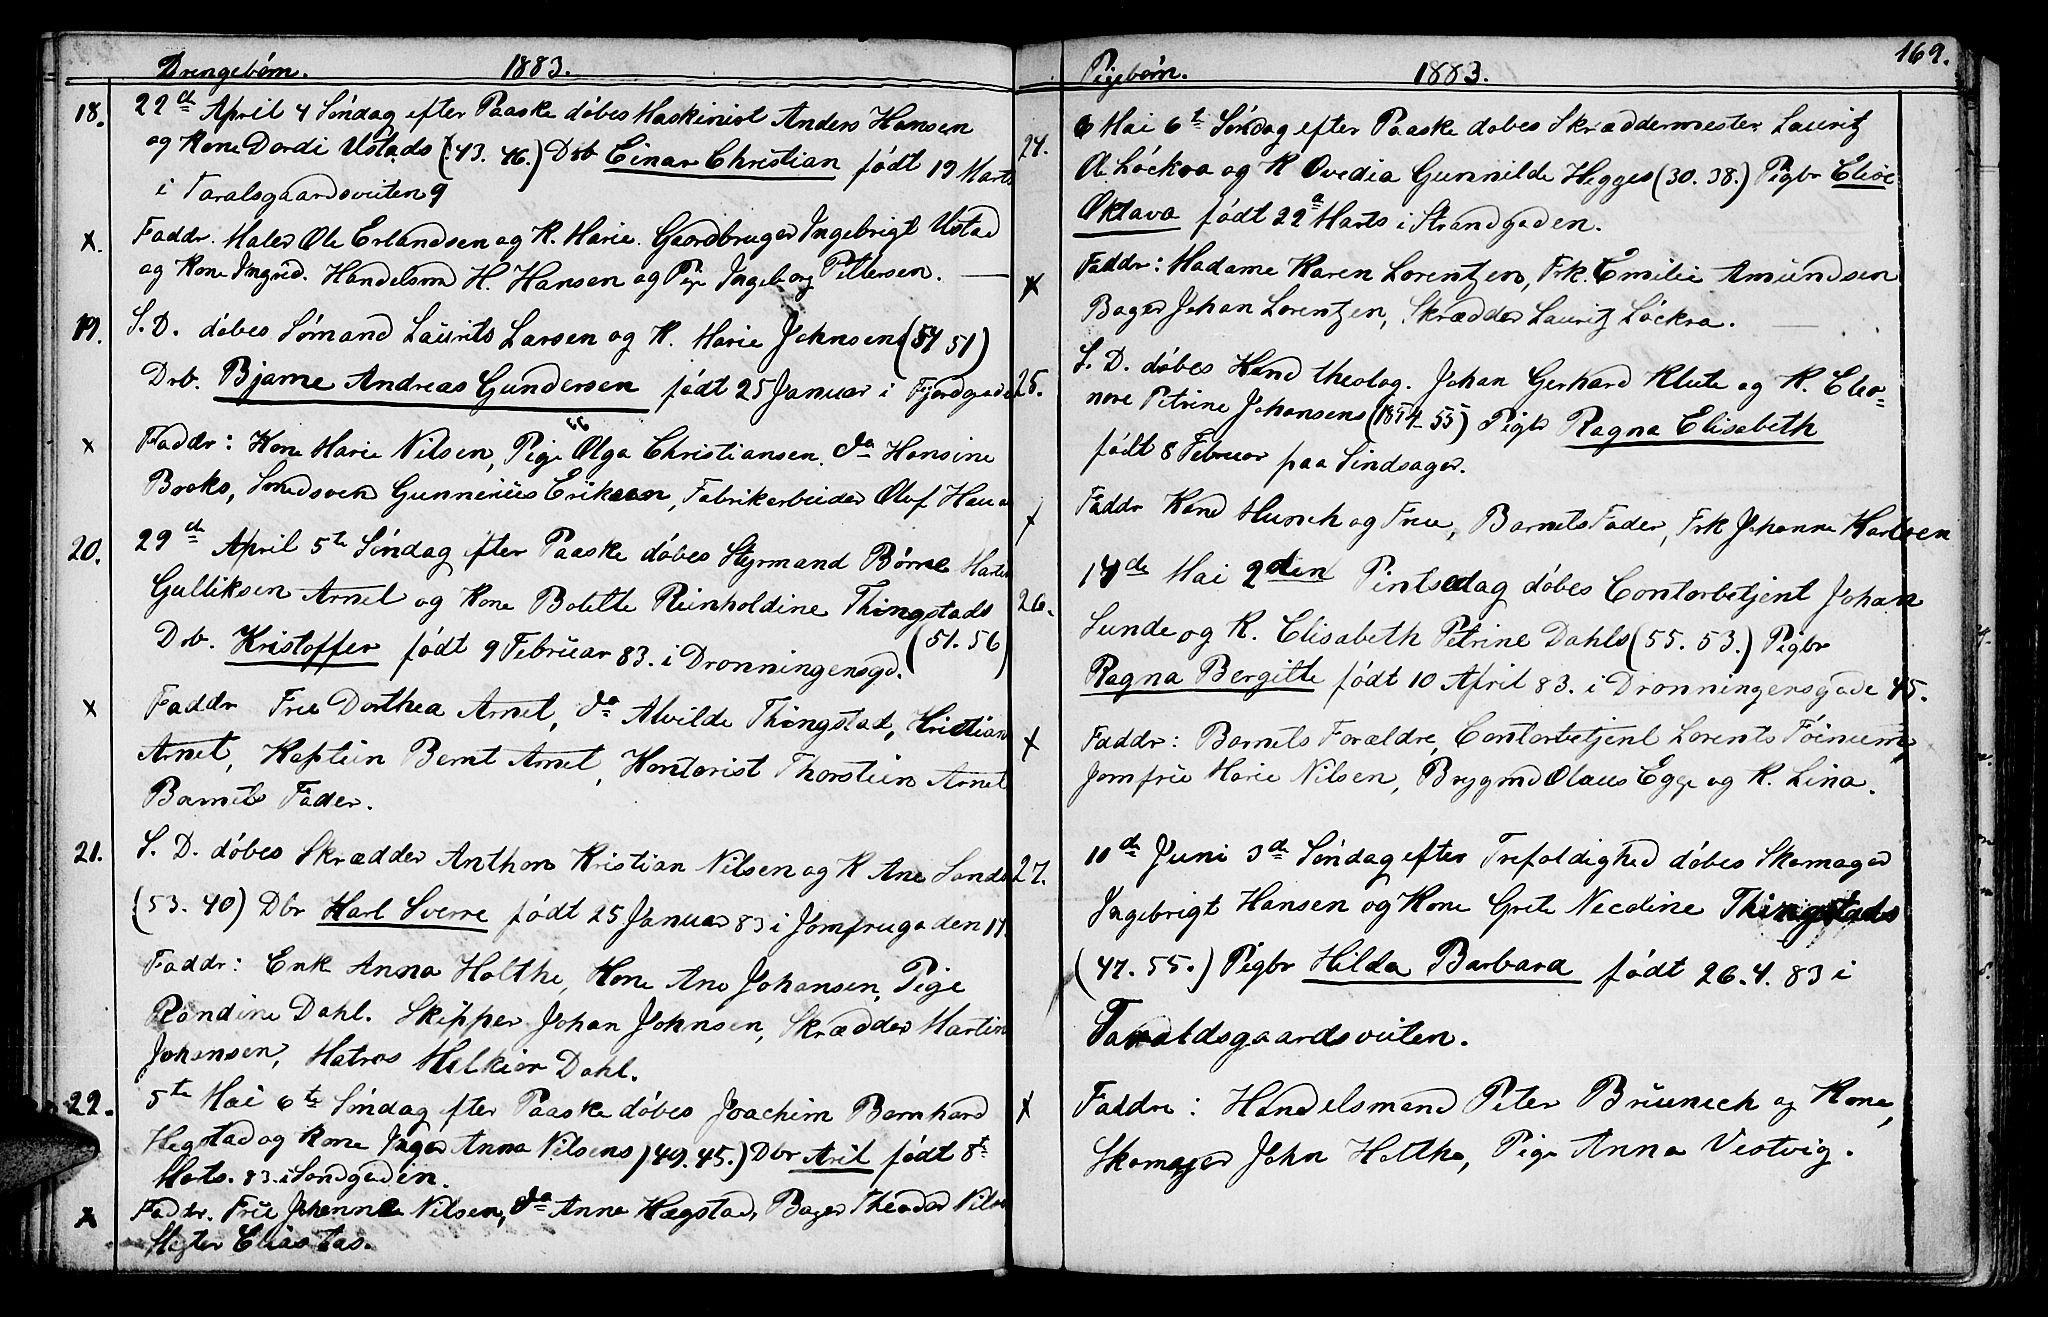 Drengebørn. 1883.
18. 22de April 4 Søndag efter Paaske døbes Maskinist Anders Hansen
og Kone Dordi Ustads (43. 46.) Drb Einar Christian født 19 Marts
i Taralsgaardsveiten 9
x. Faddr. Maler Ole Erlandsen og K. Marie. Gaardbruger Ingebrigt Ustad
og Kone Ingrid. Handelsmd H. Hansen og Pige Ingeborg Pettersen.
19. S. D. døbes Sømand Laurits Larsen og K. Marie Johnsens (54 51)
Drb. Bjarne Andreas Gundersen født 25 Januar i Fjordgade
x Faddr: Kone Marie Nilsen, Pige Olga Christiansen. do Hansine
Brooks, Smedsvend Gunnerius Eriksen, Fabrikarbeider Oluf
20. 29de April 5te Søndag efter Paaske døbes Styrmand Børre
Gulliksen Arnet og Kone Bolette Reinholdine Thingstads
Drb. Kristoffer født 9 Februar 83. i Dronningensgd. (51. 56)
x Faddr Frue Dorthea Arnet, da Alvilde Thingstad, Kristian
Arnet, Kaptein Bernt Arnet, Kontorist Thorstein Arnet
Barnets Fader.
21. S. D. døbes Skrædder Anthon Kristian Nilsen og K Ane
(53. 40) Dbr Karl Sverre født 25 Januar 83 i Jomfrugaden 17
Faddr: Enk Anna Holthe, Kone Ane Johansen, Pige
Randine Dahl. Skipper Johan Johnsen, Skrædder Martin
Johansen, Matros Melkior Dahl.
22. 5te Mai 6te Søndag efter Paaske døbes Joachim Bernhard
Hegstad og Kone Inger Anna Nilsens (49. 45.) Dbr Aril født 8te
Marts. 83. i Sandgaden.
x Faddr. Frue Johanne Nilsen, da Anna Hægstad, Bager Theodor Nilsen
Elias Tas.
169.
Pigebørn. 1883.
24. 6 Mai 6te Søndag efter Paaske døbes Skræddermester Lauritz
Ole Løckra og K Ovedia Gunnilde Hegges (30. 38.) Pigbr Elise
Oktava født 22de Marts i Strandgaden.
x Faddr: Madame Karen Lorentzen, Frk. Emilie Amundsen
Bager Johan Lorentzen, Skrædder Lauritz Løckra.
25. S. D. døbes Kand theolog. Johan Gerhard Klute og K. Eleo-
nore Petrine Johansens (1854-55) Pigbr Ragna Elisabeth
født 8 Februar paa Sindsager.
x Faddr Kand Munch og Frue, Barnets Fader, Frk Johanne Karlsen
26. 14de Mai 2den Pintsedag døbes Contorbetjent Johan
Sunde og K. Elisabeth Petrine Dahls (55. 53.) Pigbr
Ragna Bergitte født 10 April 83. i Dronningensgade 45.
x Faddr: Barnets Forældre, Contorbetjent Lorents Föinum,
Jomfrue Marie Nilsen, Brygmd Olaus Egge og K. Lina.
27. 10de Juni 3de Søndag efter Trefoldighed døbes Skomager
Ingebrigt Hansen og Kone Grete Necoline Thingstads
(47. 55.) Pigbr Hilda Barbara født 26.4.83 i
Taraldsgaardsveiten.
x Faddre: Handelsmand Peter Bruneck og Kone,
Skomager John Holthe, Pige Anna Vestvig.